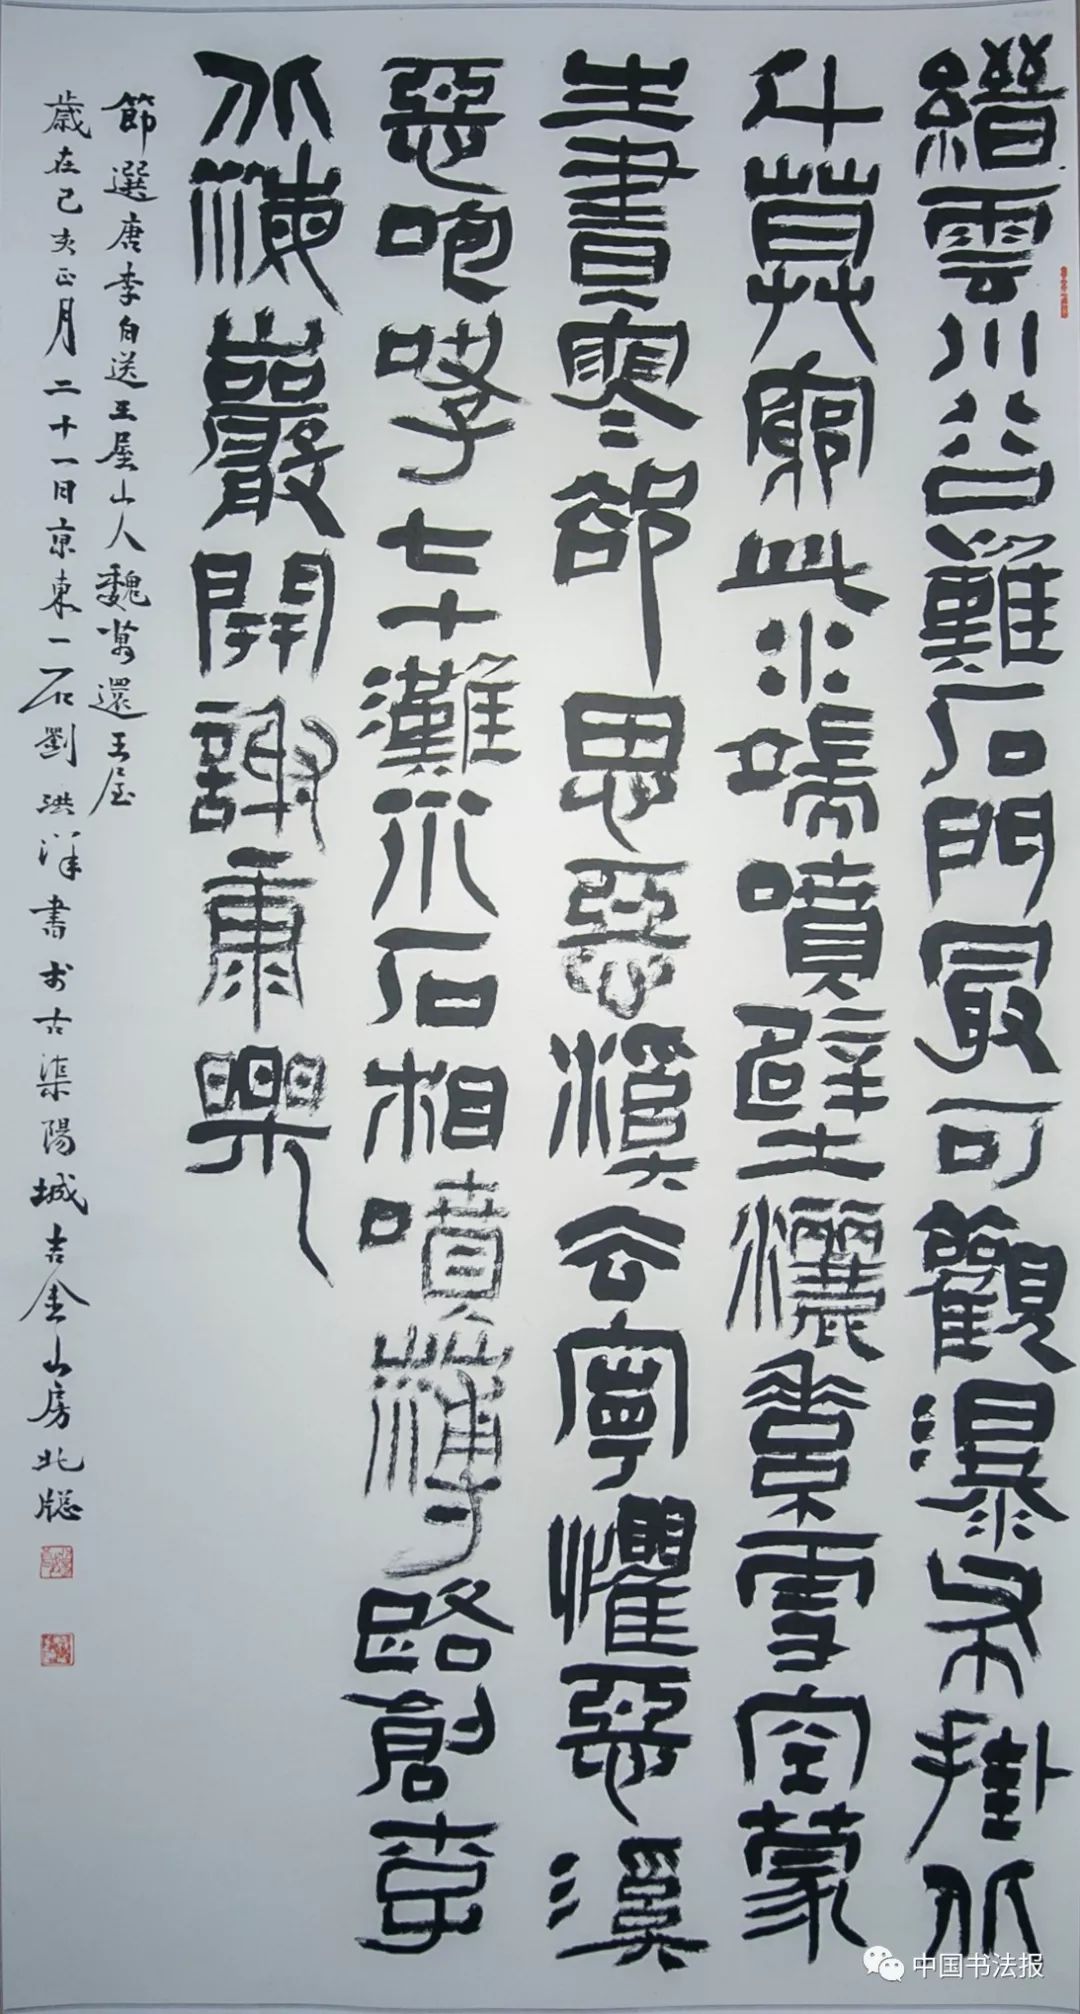 縉雲川谷難石門最可觀瀑布掛北
斗莫窮此水端噴壁灑素雪空蒙
生晝寒卻思惡溪去寧懼惡溪
惡咆哮七十灘水石相噴薄路創李
北海巖開謝康樂
節選唐李白送王屋山人魏萬還王屋
歲在己亥正月二十一日京東一石劉洪洋書於古渠陽城吉金山房北牕
中国书法报